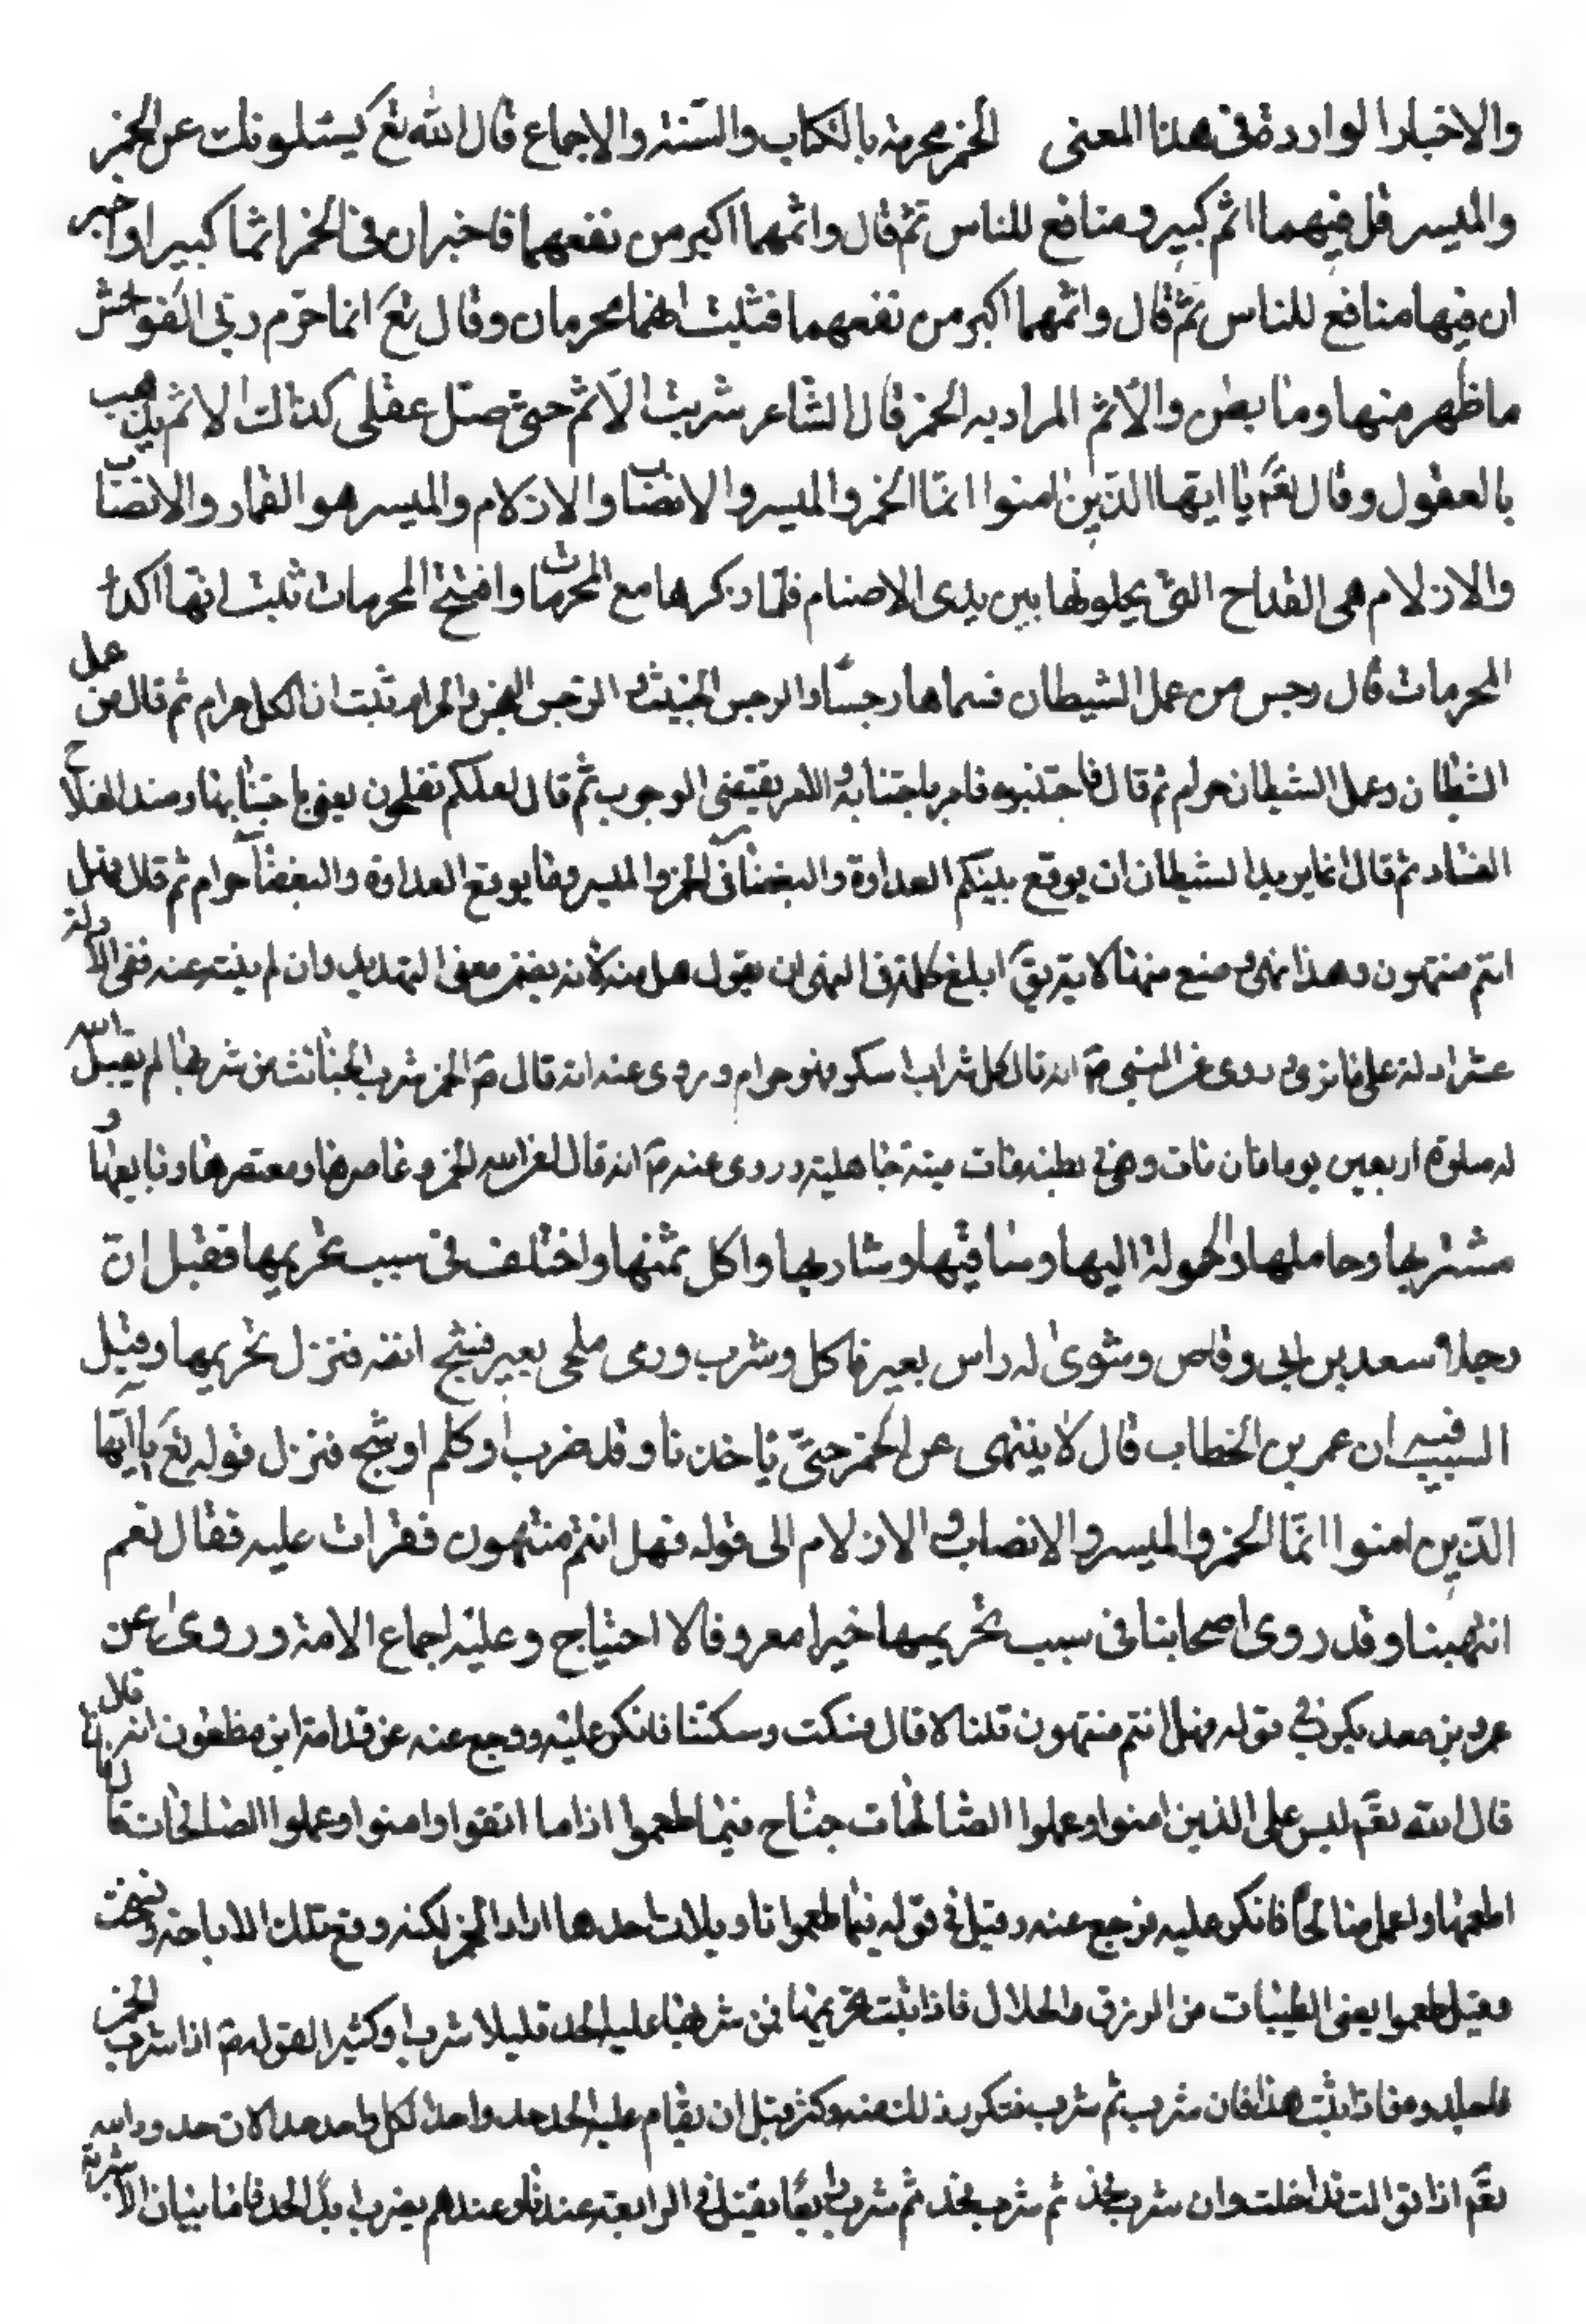 والاخبار الواردة فى هذا المعنى الخمر محرمة بالكتاب والسّنة والاجماع قال الله تع يسئلونك عن الخمر
والميسر قل فيهما اثم كبير ومنافع للناس ثم قال واثمهما اكبر من نفعهما فاخبر ان فى الخمر اثما كبيرا واخبر
ان فيها منافع للناس ثم قال واثمهما اكبر من نفعهما فثبت انهما محرمان وقال تع انما حرّم ربى الفوحش
ماظهر منها وما بطن والاثم المراد به الخمر قال الشاعر شربت الاثم حتى ضل عقلى كذالك الاثم يذهب
بالعقول وقال تعم يا ايها الذين امنوا انمّا الخمر والميسر والانصاب والازلام والميسر هو القمار والانصاب
والازلام هى القداح التى يجلونها بين يدى الاصنام فلما ذكرها مع المحرمات وافتتح المحرمات ثبت انها اكد
المحرمات قال رجس من عمل الشيطان فسماها رجسا والرجس الخبيث والرجس النجس والحرام ثبت ان الكل حرام ثم قال من عمل
الشيطان وعمل الشيطان حرام ثم قال فاجتنبوه فامر باجتنابه والامر يقتضى الوجوب ثم قال لعلكم تفلحون يعنى باجتنابها وضد الفلاح
الفساد ثم قال انما يريد الشيطان ان يوقع بينكم العداوة والبغضاء فى الخمر والميسر وما يوقع العداوة والبغضاء حرام ثم قال فهل
انتم منتهون وهذا نهى ومنع منها لانه يق ابلغ كلمة فى النهى ان يقول هل منه لانه يضمن معنى التهديد وان لم ينته عنه ففى الاية دلة
عشر ادلة على ما ترى وروى عن النبى صم انه قال كل شراب اسكر فهو حرام وروى عنه انه قال صم الخمر شر الخبائث من شربها لم يقبل الله
له صلوة اربعين يوما فان مات وهى فى بطنه مات ميتة جاهلية وروى عنه صم انه قال لعن الله الخمر وعاصرها ومعتصرها وبايعها و
مشتريها وحاملها والمحمولة اليها وساقيها وشاربها واكل ثمنها واختلف فى سبب تحريمها فقيل ان
رجلا سعد بن ابى وقاص وشوى له راس بعير فاكل وشرب ورمى ملحى بعير فشج انفه فنزل تحريمها وقيل
السبب فيه ان عمر بن الخطاب قال لا ينتهى عن الخمر حتّى ياخذنا وقد ضرب او كلم او شج فنزل قوله تع يا ايّها
الذين امنوا انمّا الخمر والميسر والانصاب والازلام الى قوله فهل انتم منتهون فقرات عليه فقال نعم
انتهينا وقد روى اصحابنا فى سبب تحريمها خبرا معروفا لا احتياج وعليه اجماع الامة وروى عن
عمرو بن معديكرب فى قوله فهل انتم منتهون قلنا لا قال فسكت وسكتنا فانكر عليه ورجع عنه عن قدامة ابن مظعون انه قال
قال الله تعم ليس على الذين امنوا وعملوا الصالحات جناح فيما طعموا اذا ما اتقوا وامنوا وعملوا الصالحات
اطعمها واعمل صالحا فانكر عليه فرجع عنه وقيل فى قوله فيما طعموا تاويلات احدها اراد الخمر لكنه وقع تلك الاباحة ونسخت
وقيل طعموا يعنى الطيبات من الرزق والحلال فاذا ثبت تحريمها فمن شربها عليه الحد قليلا شرب او كثيرا لقوله صم اذا شرب الخمر
فاجلدوه فاذا ثبت هذا فان شرب ثم شرب فتكرر ذلك منه وكثر قبل ان يقام عليه الحد حد واحد لكل واحد حدا لان حدود الله
تعم اذا توالت تداخلت وان شرب فحد ثم شرب فحد ثم شرب رابعا يقتل فى الرابعة عندنا وعندهم يضرب ابدا الحد فاما بيان الاشربة